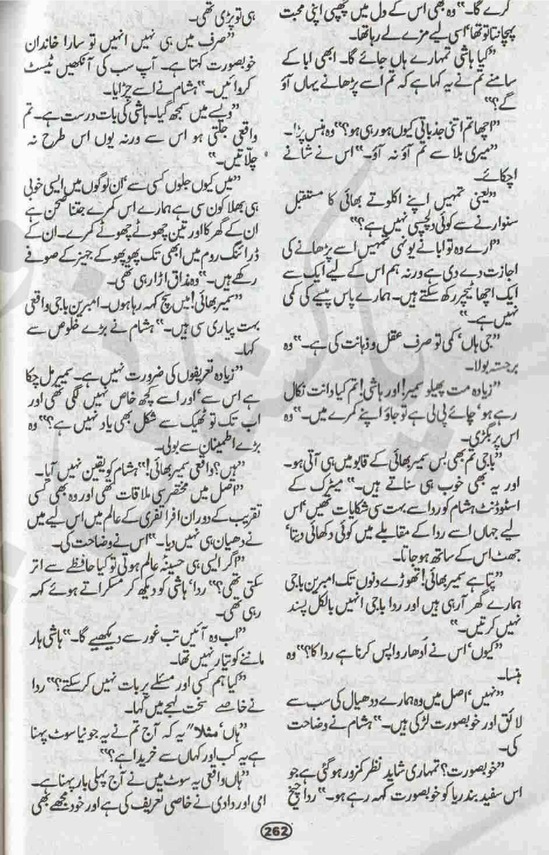 کرے گا۔“ وہ بھی اس کے دل میں چھپی اپنی محبت
پہچانتا تو تھا‘ اسی لیے مزے لے رہا تھا۔
”کیا ہاشی تمہارے ہاں جائے گا۔ ابھی ابا کے
سامنے تم نے یہ کہا ہے کہ تم اسے پڑھانے یہاں آؤ
گے؟“
”اچھا تم اتنی جذباتی کیوں ہو رہی ہو؟“ وہ ہنس پڑا۔
”میری بلا سے تم آؤ نہ آؤ۔“ اس نے شانے
اچکائے۔
”یعنی تمہیں اپنے اکلوتے بھائی کا مستقبل
سنوارنے سے کوئی دلچسپی نہیں ہے؟“
”ارے وہ تو ابا نے یونہی تمہیں اسے پڑھانے کی
اجازت دے دی ہے ورنہ ہم اس کے لیے ایک سے
ایک اچھا ٹیچر رکھ سکتے ہیں۔ ہمارے پاس پیسے کی کمی
نہیں ہے۔“
”جی ہاں‘ کمی تو صرف عقل و ذہانت کی ہے۔“ وہ
برجستہ بولا۔
”زیادہ مت پھیلو سمیر! اور ہاشی! تم کیا دانت نکال
رہے ہو‘ چائے پی لی ہے تو جاؤ اپنے کمرے میں۔“ وہ
اس پر بگڑی۔
”باجی تم بھی بس سمیر بھائی کے قابو میں ہی آتی ہو۔
اور یہ بھی خوب ہی ستاتے ہیں۔“ میٹرک کے
اسٹوڈنٹ ہشام کو ردا سے بہت سی شکایات تھیں‘ اس
لیے جہاں اسے ردا کے مقابلے میں کوئی دکھائی دیتا‘
جھٹ اس کے ساتھ ہو جاتا۔
”پتا ہے سمیر بھائی! تھوڑے دنوں تک امبرین باجی
ہمارے گھر آ رہی ہیں اور ردا باجی انہیں بالکل پسند
نہیں کرتیں۔“
”کیوں‘ اس نے ادھار واپس کرنا ہے ردا کا؟“ وہ
ہنسا۔
”نہیں‘ اصل میں وہ ہمارے ددھیال کی سب سے
لائق اور خوبصورت لڑکی ہیں۔“ ہشام نے وضاحت
کی۔
”خوبصورت؟ تمہاری شاید نظر کمزور ہو گئی ہے جو
اس سفید بندریا کو خوبصورت کہہ رہے ہو۔“ ردا چیخ
ہی تو پڑی تھی۔
”صرف میں ہی نہیں انہیں تو سارا خاندان
خوبصورت کہتا ہے۔ آپ سب کی آنکھیں ٹیسٹ
کروائیں۔“ ہشام نے اسے چڑایا۔
”ویسے میں سمجھ گیا۔ ہاشی کی بات درست ہے۔ تم
واقعی جلتی ہو اس سے ورنہ یوں اس طرح نہ
چلاتیں۔“
”میں کیوں جلوں کسی سے‘ ان لوگوں میں ایسی خوبی
ہی بھلا کون سی ہے ہمارے اس کمرے جتنا صحن ہے
ان کے گھر کا اور تین چھوٹے چھوٹے کمرے۔ ان کے
ڈرائنگ روم میں ابھی تک پھوپھو کے جہیز کے صوفے
رکھے ہیں۔“ وہ مذاق اڑا رہی تھی۔
”سمیر بھائی! میں سچ کہہ رہا ہوں۔ امبرین باجی واقعی
بہت پیاری سی ہیں۔“ ہشام نے بڑے خلوص سے
کہا۔
”زیادہ تعریفوں کی ضرورت نہیں ہے۔ سمیر مل چکا
ہے اس سے‘ اور اسے کچھ خاص نہیں لگی تھی اور
اب تک تو ٹھیک سے شکل بھی یاد نہیں ہے؟“ وہ
بڑے اطمینان سے بولی۔
”ہیں؟ واقعی سمیر بھائی!“ ہشام کو یقین نہیں آیا۔
”اصل میں مختصر سی ملاقات تھی اور وہ بھی کسی
تقریب کے دوران افراتفری کے عالم میں اس لیے میں
نے دھیان ہی نہیں دیا۔“ اس نے وضاحت کی۔
”اگر ایسی ہی حسینہ عالم ہوتی تو کیا حافظے سے اتر
سکتی تھی؟“ ردا‘ ہاشی کو دیکھ کر مسکراتے ہوئے کہہ
رہی تھی۔
”اب وہ آئیں تب غور سے دیکھیے گا۔“ ہاشی ہار
ماننے کو تیار نہیں تھا۔
”کیا ہم کسی اور مسئلے پر بات نہیں کر سکتے؟“ ردا
نے خاصے سخت لہجے میں کہا۔
”ہاں‘ مثلاً یہ کہ آج تم نے یہ جو نیا سوٹ پہنا
ہے یہ کب اور کہاں سے خریدا ہے؟“
”ہاں واقعی یہ سوٹ میں نے آج پہلی بار پہنا ہے۔
امی اور دادی نے خاصی تعریف کی ہے اور خود مجھے بھی
262